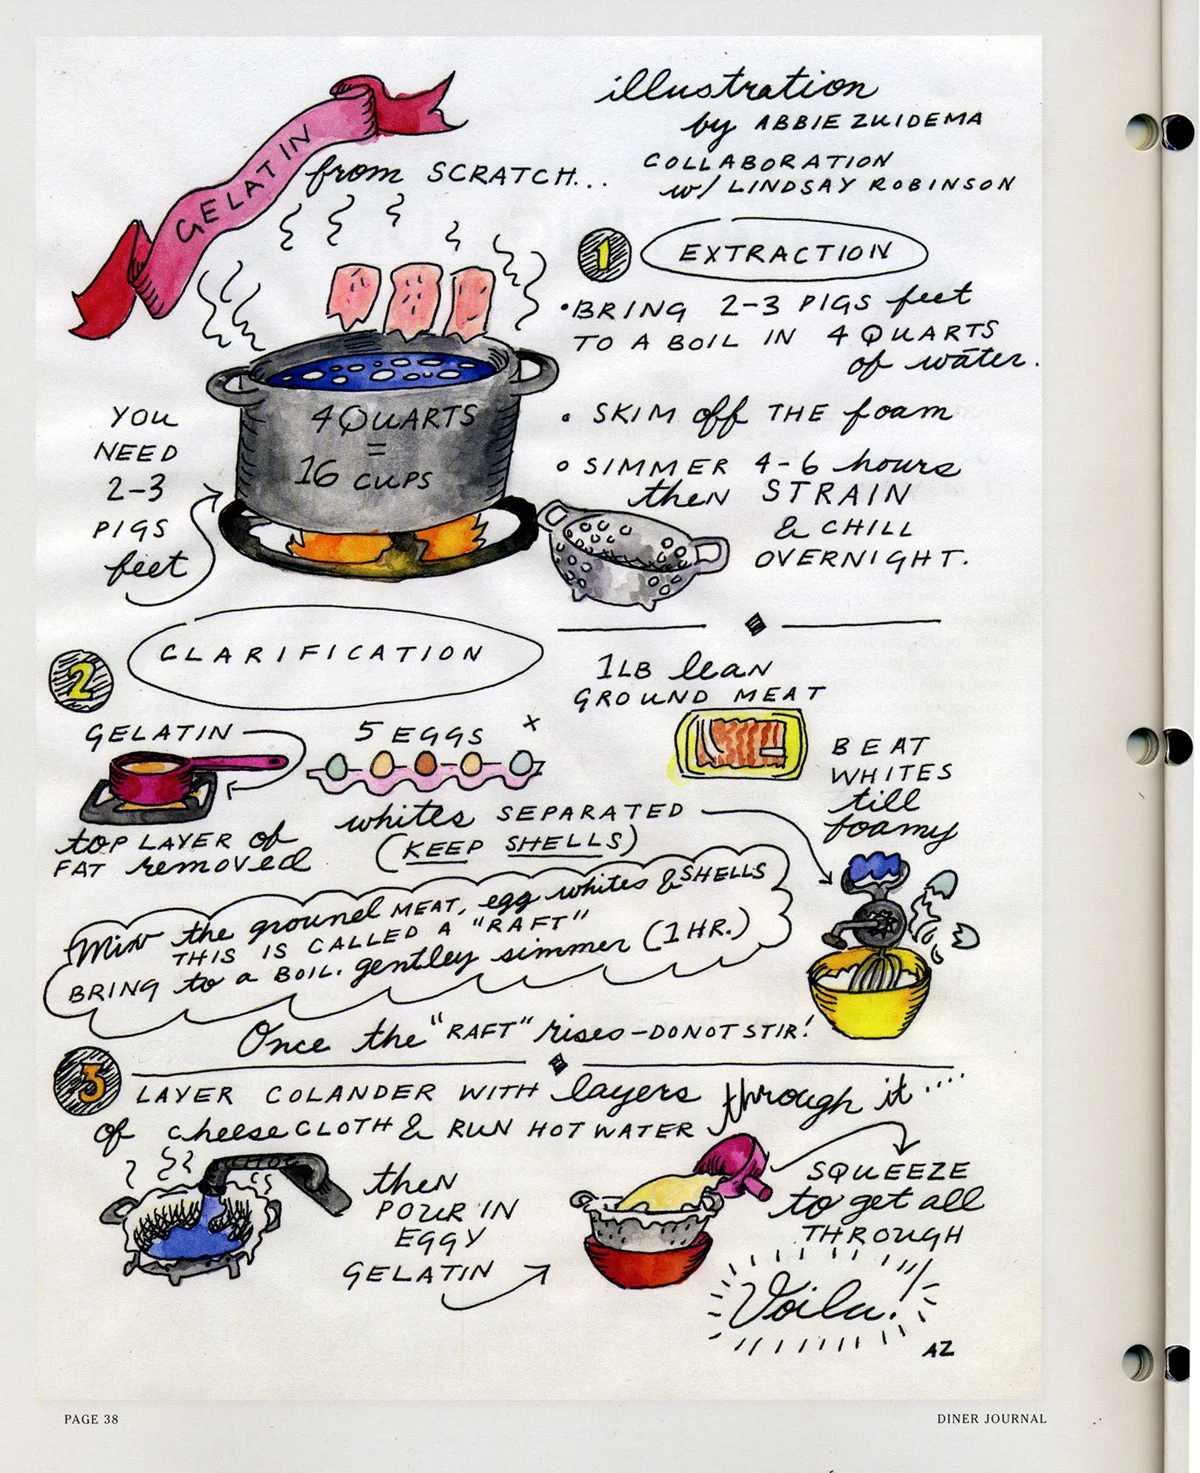 GELATIN
from SCRATCH...
illustration
by ABBIE ZUIDEMA
COLLABORATION
w/ LINDSAY ROBINSON
1 EXTRACTION
•BRING 2-3 PIGS feet
TO A BOIL IN 4 QUARTS
of water.
• SKIM off THE foam
• SIMMER 4-6 hours
then STRAIN
& CHILL
OVERNIGHT.
4 QUARTS
=
16 CUPS
YOU
NEED
2-3
PIGS
feet
2 CLARIFICATION
GELATIN
top LAYER of
FAT removed
5 EGGS x
whites SEPARATED
(KEEP SHELLS)
1LB lean
GROUND MEAT
BEAT
WHITES
till
foamy
Mix the ground MEAT, egg whites & SHELLS
THIS IS CALLED A "RAFT"
BRING to a BOIL. gentley simmer (1 HR.)
Once the "RAFT" rises-DO NOT STIR!
3 LAYER COLANDER WITH layers
of cheese CLOTH & RUN HOT WATER through it ....
then
POUR IN
EGGY
GELATIN
SQUEEZE
to get all
THROUGH
Voila!
AZ
PAGE 38
DINER JOURNAL